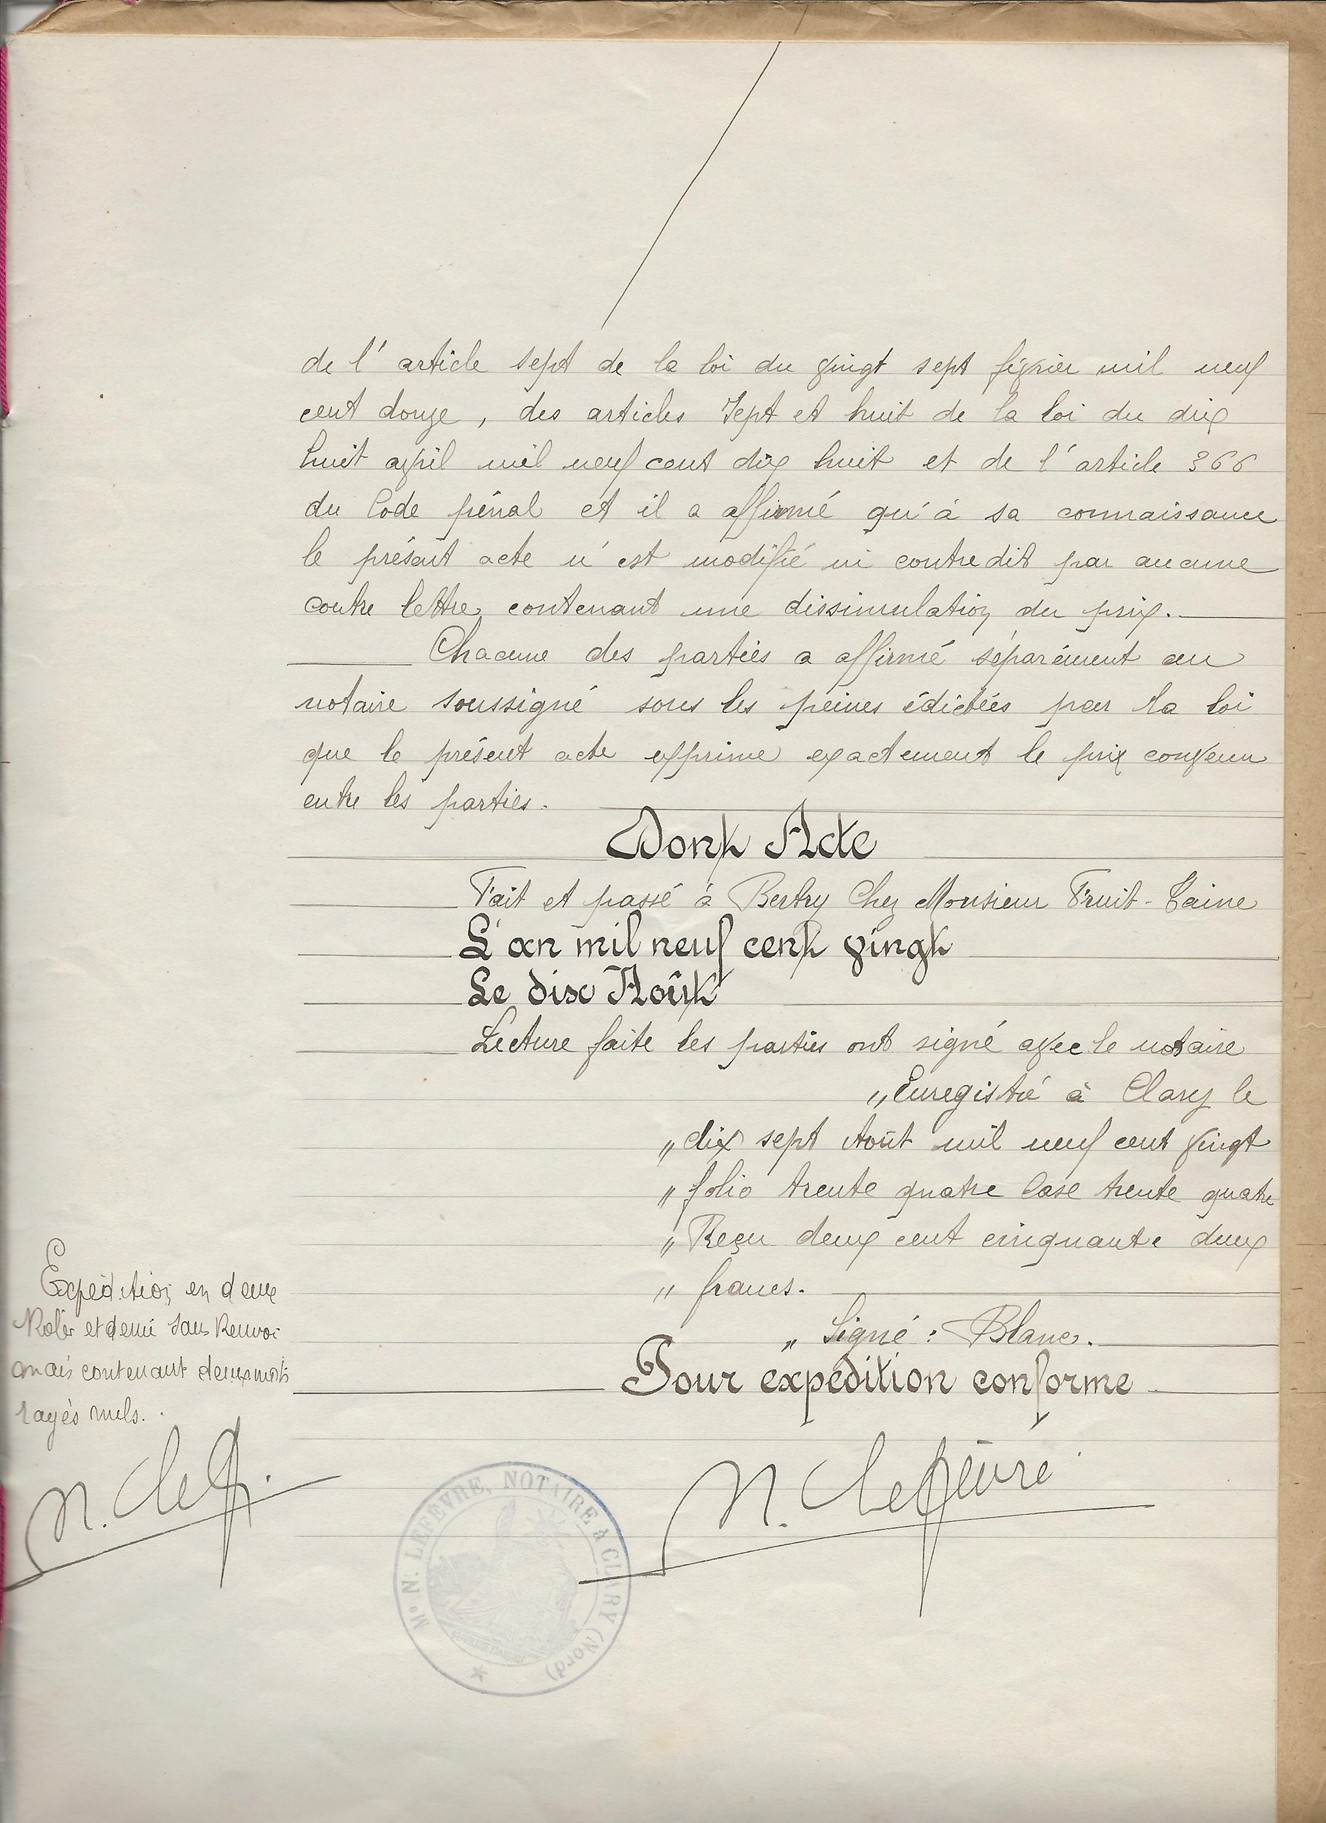 de l'article sept de la loi du vingt sept février mil neuf
cent douze, des articles sept et huit de la loi du dix
huit avril mil neuf cent dix huit et de l'article 366
du Code pénal et il a affirmé qu'à sa connaissance
le présent acte n'est modifié ni contredit par aucune
contre lettre contenant une dissimulation du prix.
Chacune des parties a affirmé séparément au
notaire soussigné sous les peines édictées par la loi
que le présent acte exprime exactement le prix convenu
entre les parties.
Dont Acte
Fait et passé à Bertry chez Monsieur Fruit-Taine
L'an mil neuf cent vingt
Le dix Août
Lecture faite les parties ont signé avec le notaire
"Enregistré à Clary le
"dix sept Août mil neuf cent vingt
"folio trente quatre Case trente quatre
"Reçu deux cent cinquante deux
"francs.
"Signé : Blanc.
Pour expédition conforme
Expédition en deux
Rôles et demi sans Renvoi
mais contenant deux mots
rayés nuls.
N. Lef.
N. Lefèvre
Me N. LEFEVRE, NOTAIRE A CLARY (Nord)